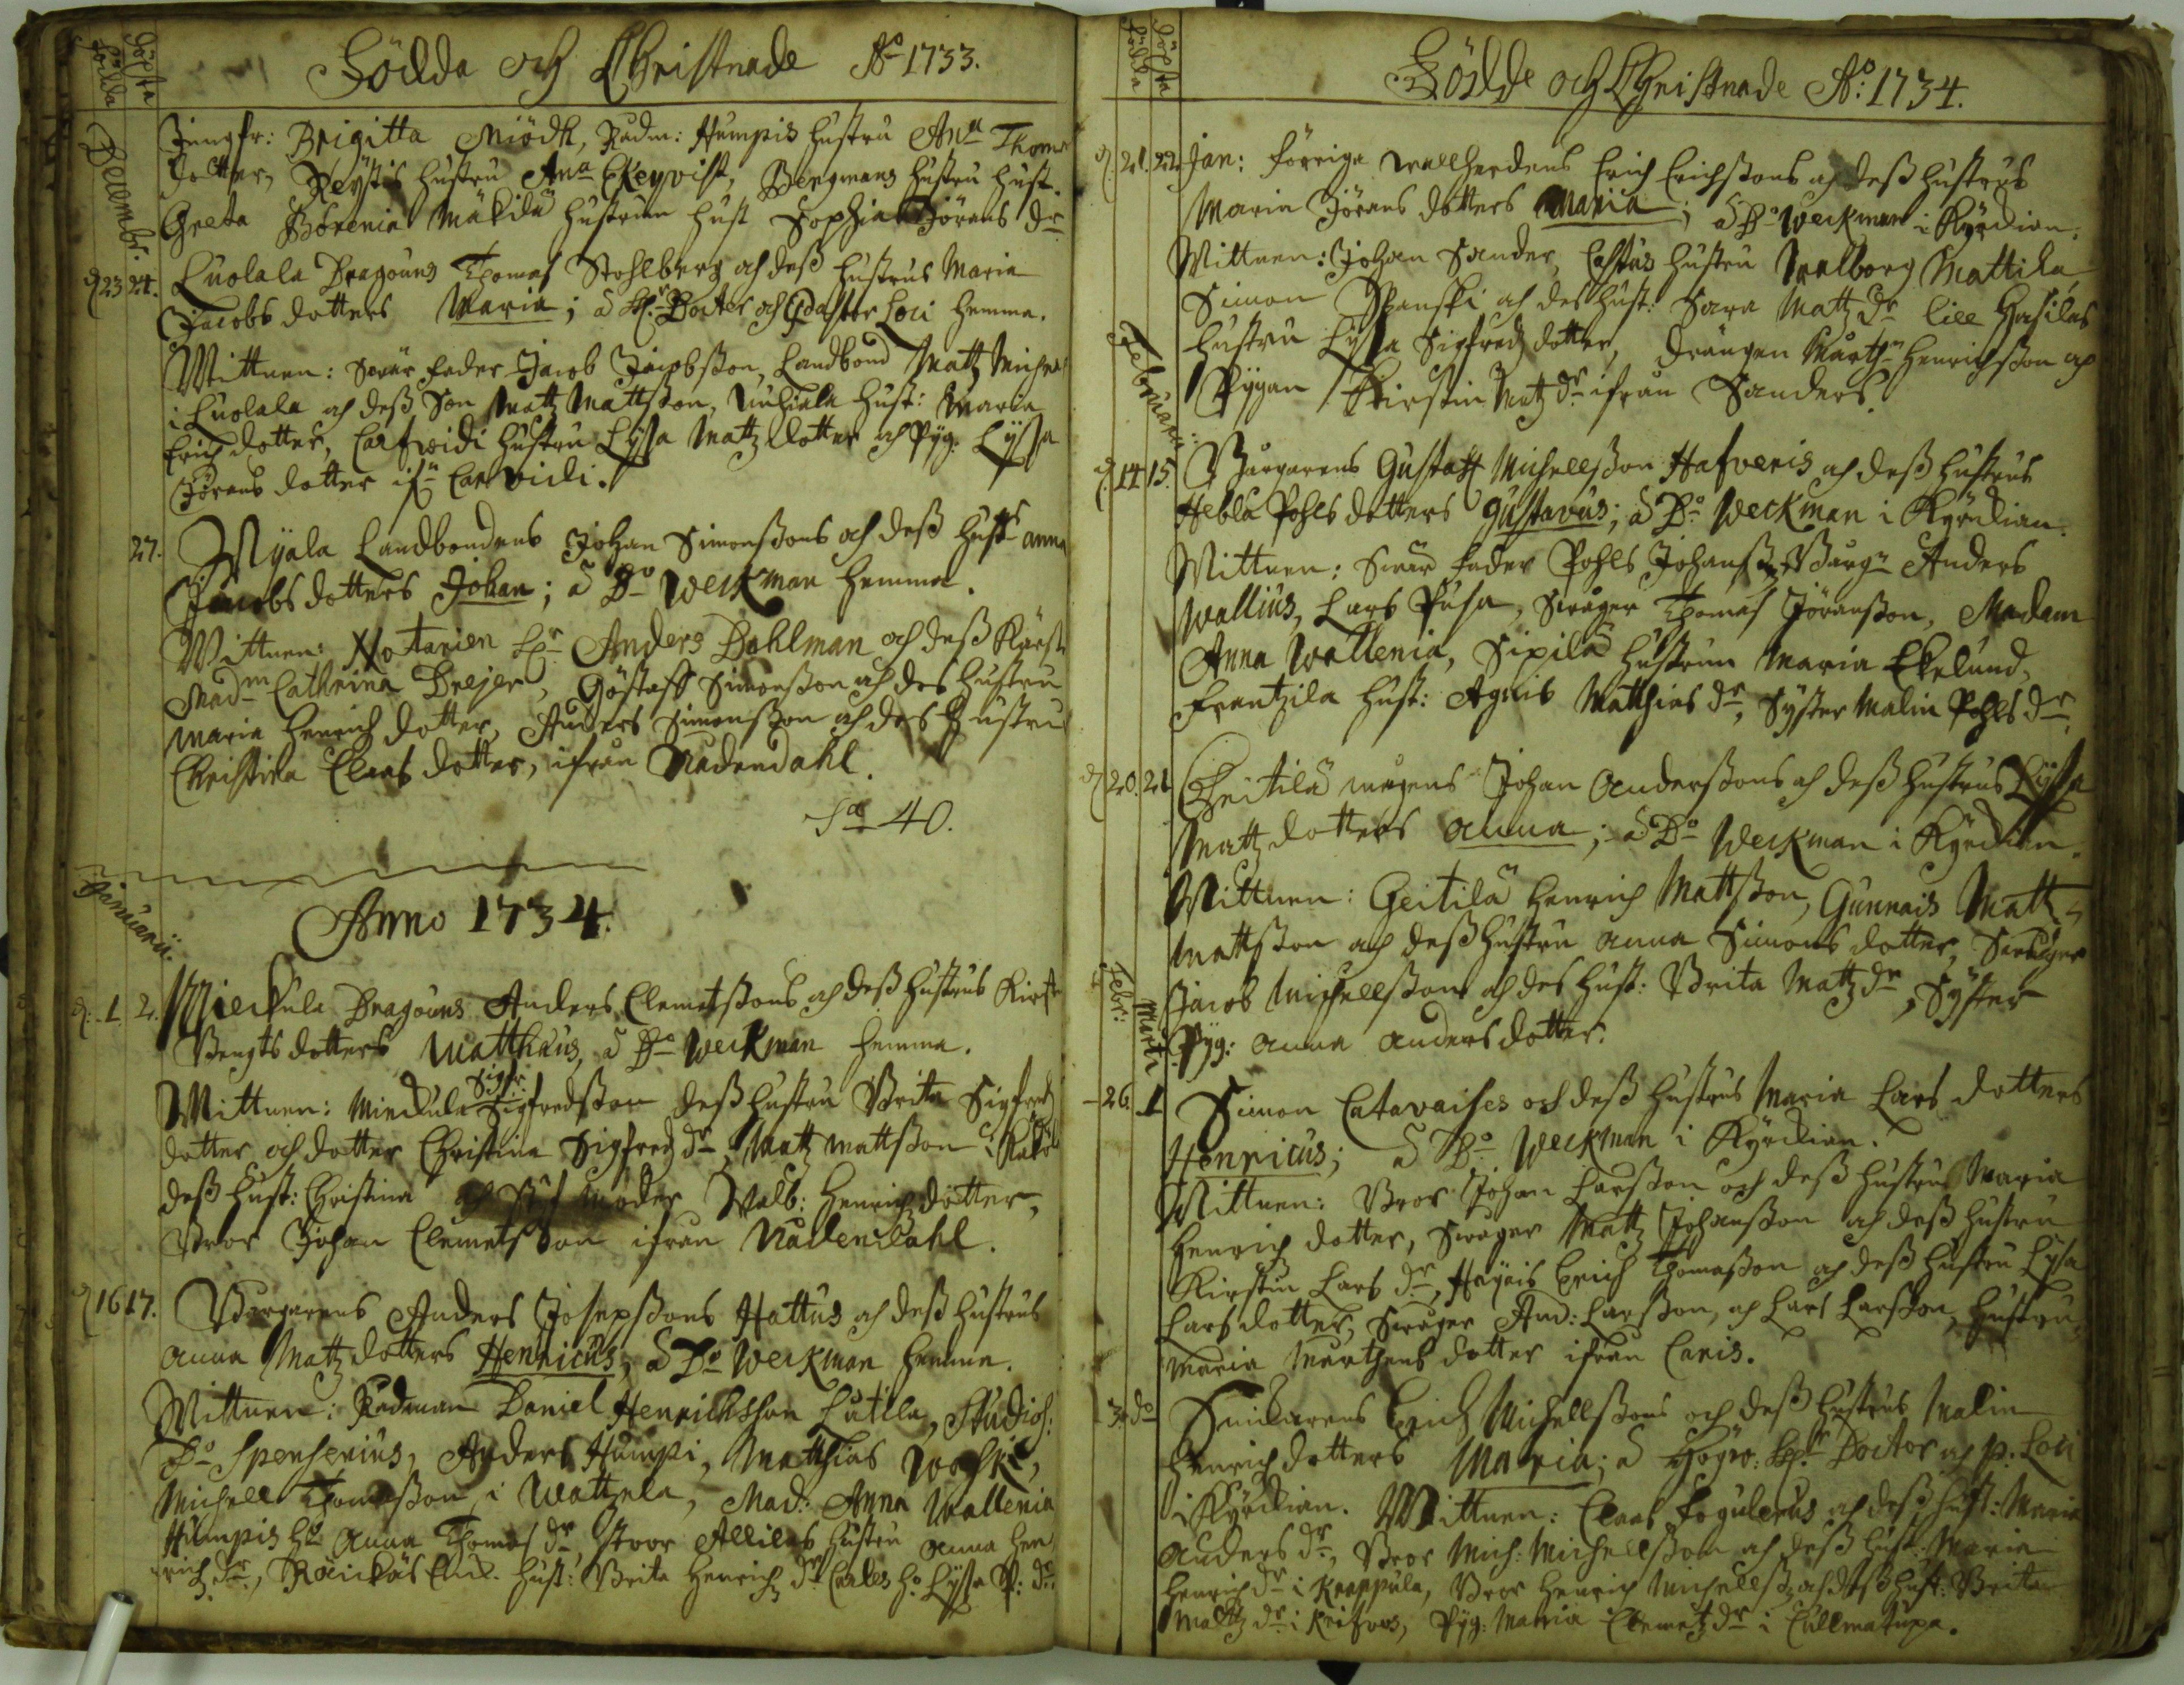 Födda
Döpta
Födda och Christnade Ao 1733.
Decembr.
Jungfr: Brigitta Miödh, Radm: Humpis hustru Ana Thoms
dotter, hustru Ana Ekeqvist, Bergmans hustru hust.
Greta Borenia Mäkilä hustrun hust Sophia Jörans dr
d 23 24. Luolala Dragouns Thomas Stohlberg och dess hustrus Maria
Jacobs dotters Maria; a Hr Doctor och Pastor Loci hemma.
Wittnen: Swär fader Jacob Jacobsson, Landbond Matz Michels
i Luolala och dess Son Matz Mattsson, hust: Maria
Erich dotter, Carfwidi hustru Lyssa Matz dotter och Pyg: Lyssa
Jörans dotter ifr Carvidi.
27. Myala Landbondens Johan Simonssons och dess hust anna
Jacobs dotters Johan; a Do Weckman hemma.
Wittnen: Notarien Hr Anders Dahlman och dess Kärest
Madm Cathrina Brejer, Göstaff Simonsson och des hustru
Maria Henrich dotter, Anders Simonsson och des Hustru
Christina Claes dotter, ifrån Nådendahl.
Sa 40.
Anno 1734.
Januarii.
d. 1. 2. Mierkula Dragouns Anders Clemetssons och dess hustrus Kirst
Bengts dotters Matthäus, a Do Weckman hemma.
Sigfr
Wittnen: Mierkula Sigfredsson dess hustru Brita Sigfredz
dotter och dotter Christina Sigfredz dr, Matz Mattsson i
dess hust: Christina och moder Walb: Henrich dotter,
Bror Johan Clemetsson ifrån Nådendahl.
d 16 17. Borgarens Anders Josepssons Hattus och dess hustrus
Anna Matz dotters Henricus, a Do Weckman hemma.
Wittnen: Radman Daniel Henrichsson Lutila, Studios:
Do Spenserius, Anders Humpi, Matthias
Michell Thomasson i Wattzela, Mad: Anna Wallenia
Humpis Ho Anna Thomas dr, stoor Allilas hustru Anna Hen
rich dr, hust: Brita Henrich dr Carles Ho Lyssa P: dr
Födda
Döpta
Födde och Christnade Ao: 1734.
d. 21. 22. Jan: förrige wallherdens Erich Erichssons och dess hustrus
Maria Jörans dotters Maria; a Do Weckman i Kyrckian.
Wittnen: Johan Sander, hustru Walborg Mattila,
Simon Spanski och des hust: Sara Matz dr lill Hasilas
hustru Lyssa Sigfredz dotter, drängen Mårthen Henrichsson och
Pygan Kirstin Matz dr ifrån Sanders.
Februarii:
d. 14 15. Borgarens Gustaff Michellsson Hafveris och dess hustrus
Hebla Pohls dotters Gustavus; a Do Weckman i Kyrckian.
Wittnen: Swär fader Pohls Johanss, Borgr Anders
Wallius, Lars Pusa, Swåger Thomas Jöransson, Madam
Anna Wallenia, Sipilä hustrun Maria Ekelund,
Frantzila hust: Agnis Matthias dr, Syster Malin Pohls dr
d 20. 21 Gheitilä mågens Johan Anderssons och dess hustrus Lyssa
Matz dotters Anna; a Do Weckman i Kyrckian.
Wittnen: Geitilä Henrich Mattsson, Gunnais Matz
Mattsson och dess hustru Anna Simons dotter, Swåger
Jacob Michellssons och des hust: Brita Matz dr, Syster
Pyg: Anna Anders dotter.
Febr:
Marti
26. 1 Simon Catavaises och dess hustrus Maria Lars dotters
Henricus; a Do Weckman i Kyrckian.
Wittnen: Bror Johan Larsson och dess hustru Maria
Henrich dotter, Swåger Matz Johansson och dess hustru
Kirstin Lars dr, Hayais Erich Thomasson och dess hustru Lysa
Lars dotter, Swåger And: Larsson, och Lars Larsson, hustru
Maria Mårthens dotter ifrån Caris.
3. do Snickarens Erich Michellssons och dess hustrus Malin
Henrich dotters Maria; a Högw: Hr Doctor och P: Loci
i Kyrckian. Wittnen: Claes Fogulerus och dess hust: Maria
Anders dr, Bror Mich: Michellsson och dess hust: Maria
Henrich dr i Kaappula, Bror Henrich Michellss och dess hust: Brita
Matz dr i Kreivas, Pyg: Maria Clemetz dr i Cullmatupa.